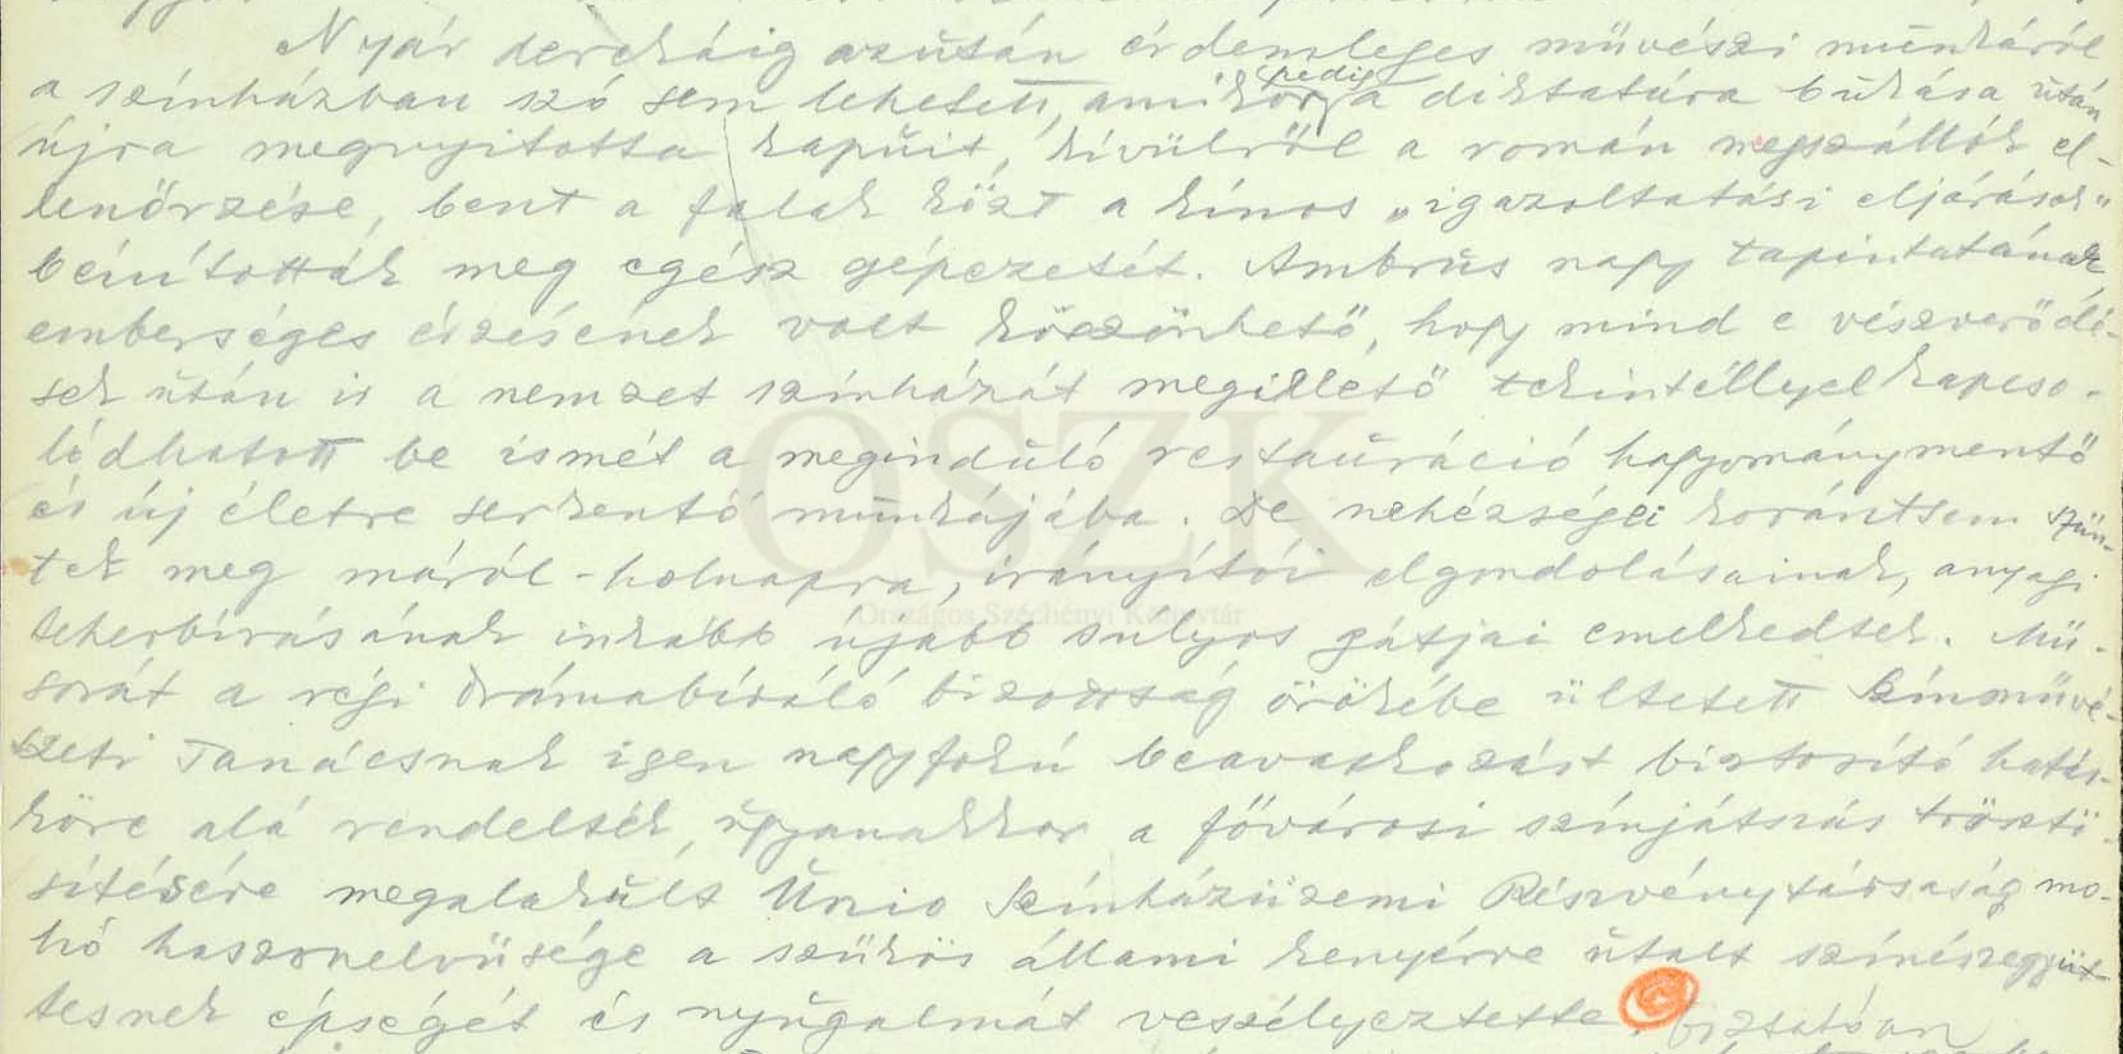 Nyár derekáig azután érdemleges művészi munkáról
a színházban szó sem lehetett, amikor pedig a diktatúra bukása után
újra megnyitotta kapuit, kívülről a román megszállók el-
lenőrzése, bent a falak közt a kínos „igazoltatási eljárások"
bénították meg egész gépezetét. Ambrus nagy tapintatának,
emberséges érzésének volt köszönhető, hogy mind e vészverődé-
sek után is a nemzet színházát megillető tekintéllyel kapcso-
lódhatott be ismét a meginduló restauráció hagyománymentő
és új életre serkentő munkájába. De nehézségei korántsem szűn-
tek meg máról-holnapra, irányítói elgondolásainak, anyagi
teherbírásának inkább újabb sulyos gátjai emelkedtek. Mű-
sorát a régi drámabíráló bizottság örökébe ültetett Színművé-
szeti Tanácsnak igen nagyfokú beavatkozást biztosító hatás-
köre alá rendelték, ugyanakkor a fővárosi színjátszás tröszti-
sítésére megalakult Unio Színházüzemi Részvénytársaság mo-
hó haszonelvűsége a szűkös állami kenyérre utalt színészegyüt-
tesnek épségét és nyugalmát veszélyeztette. Biztatóan
OSZK
Országos Széchényi Könyvtár